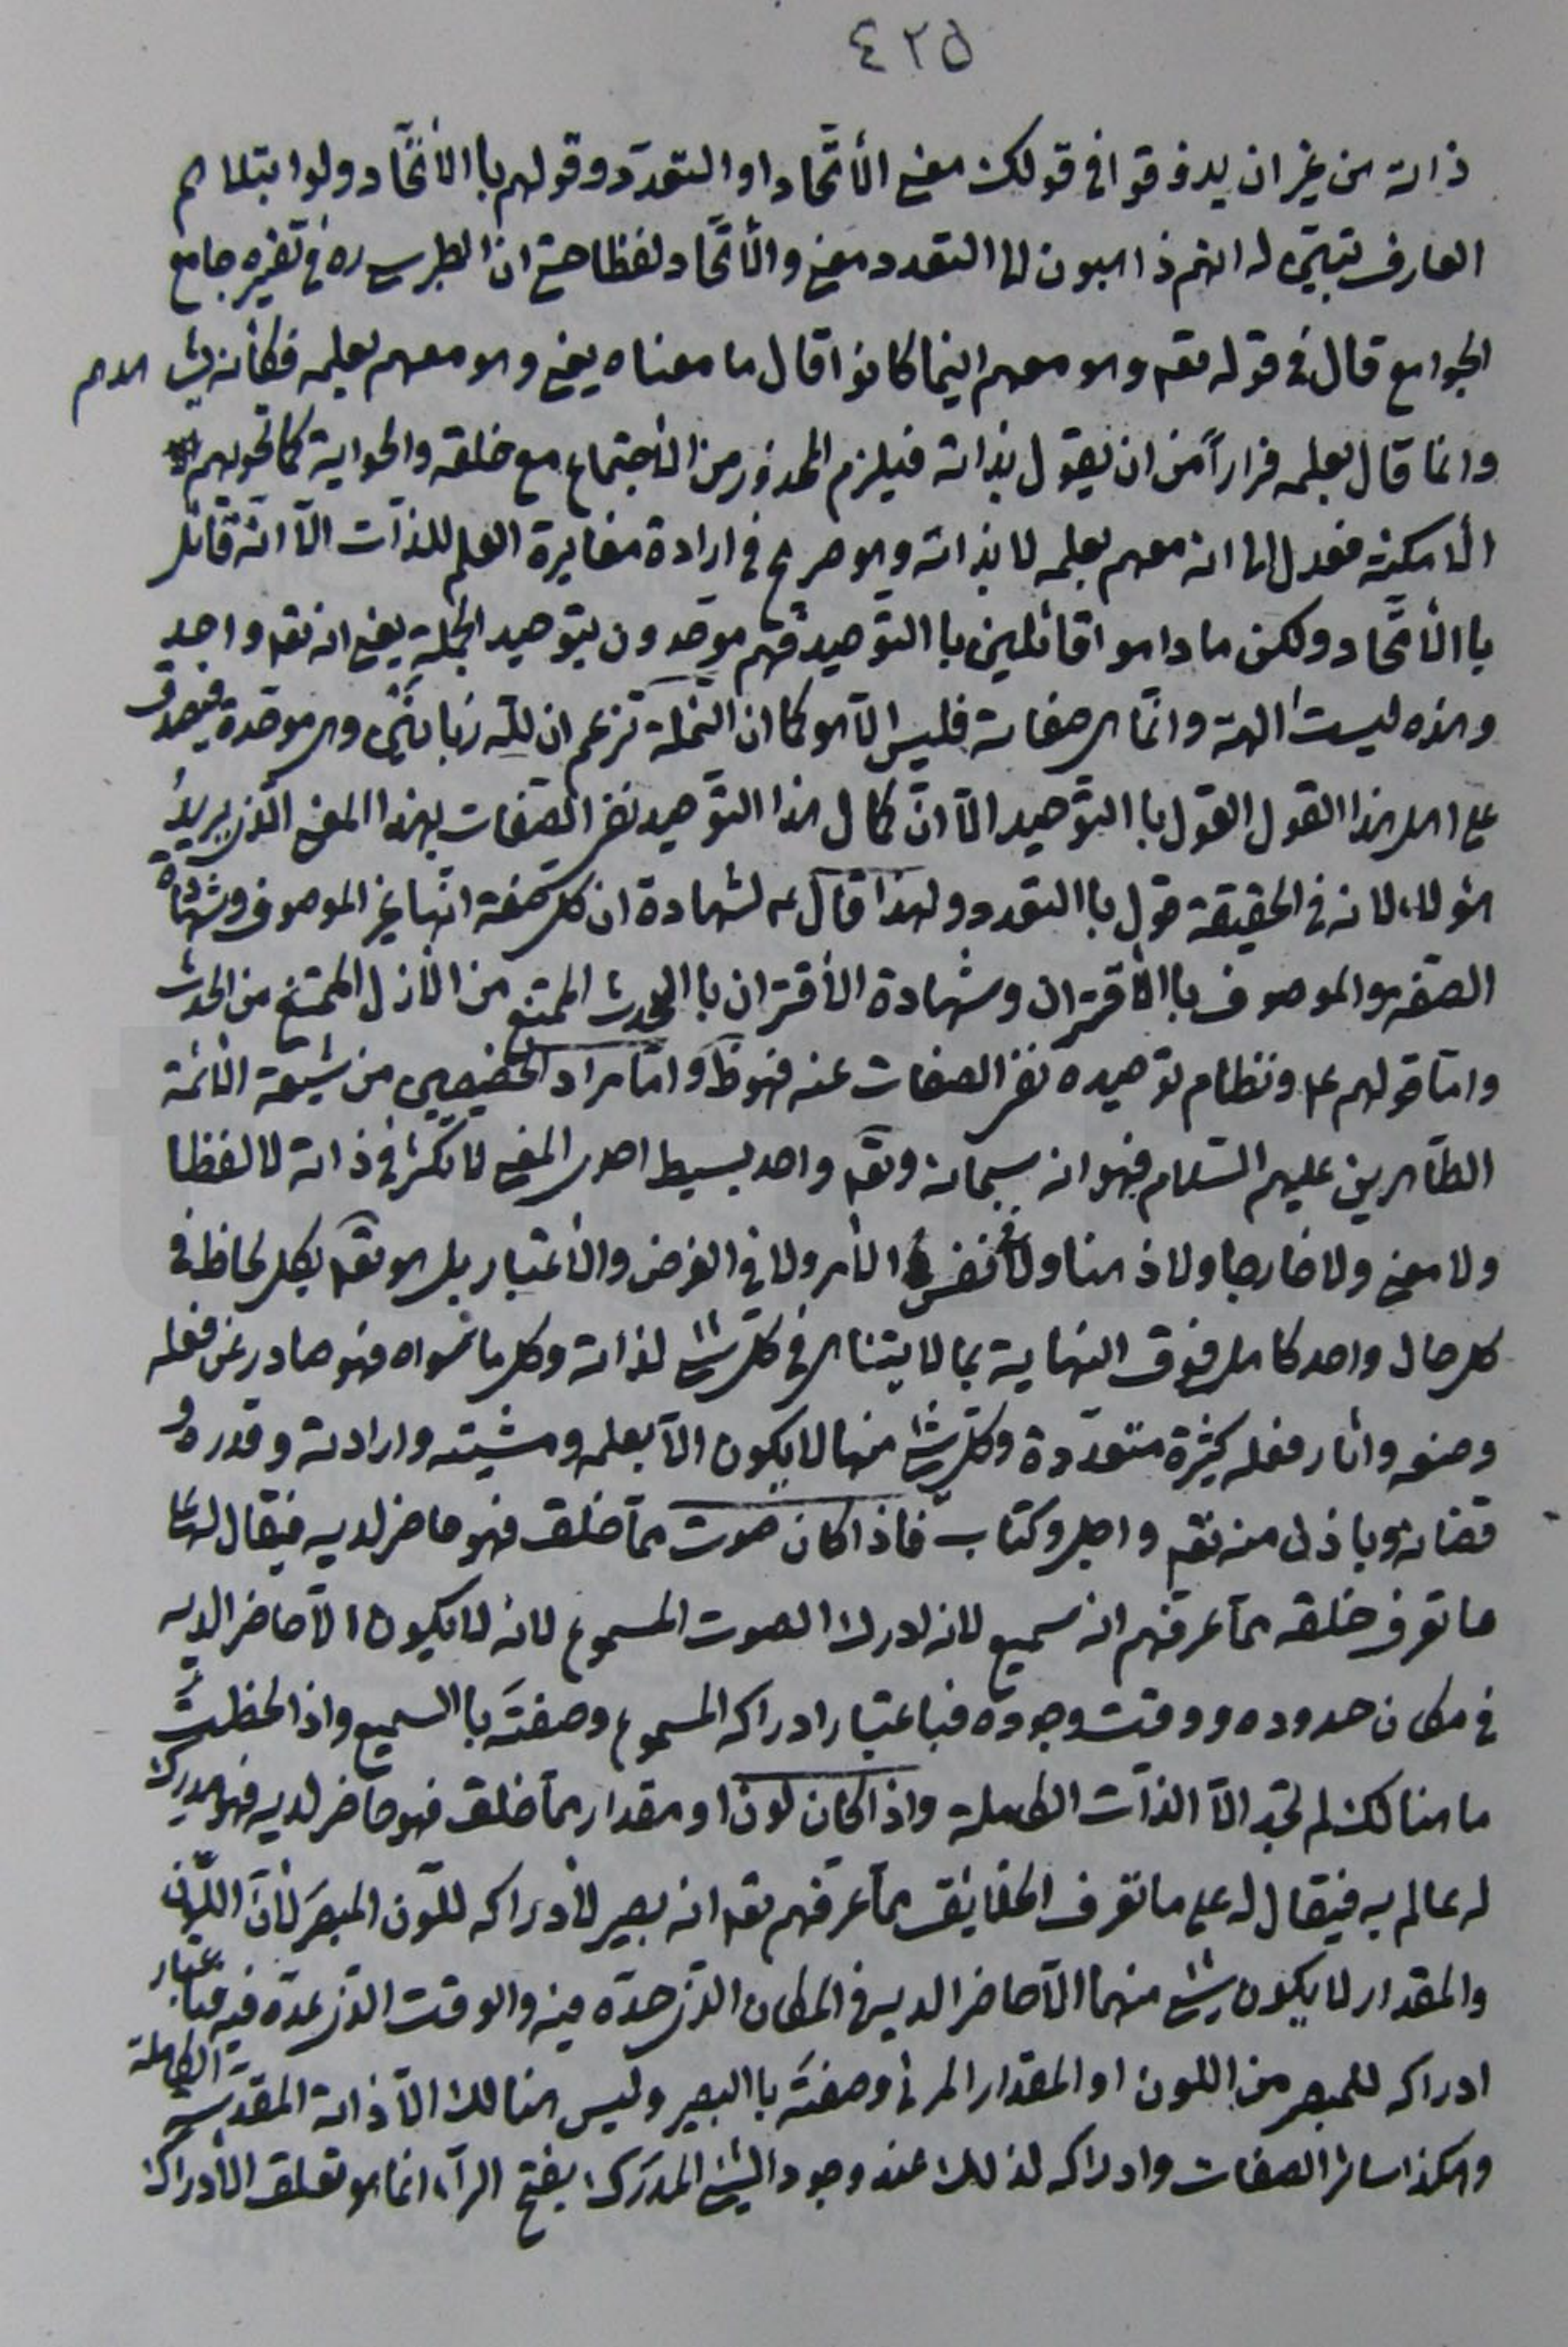 ٤٢٥
ذاته من غير ان يدفوقوا في قولك معنى الأتّحاد او التعدّد وقولهم با الأتّحاد ولو ابتلاهم
العارف تبيّن له انهم ذاهبون الى التعدد معنى والأتّحاد لفظا حتى ان الطبرسي ره في تفسيره جامع
الجوامع قال في قوله تعه وهو معهم اينما كانوا قال ما معناه يعني وهو معهم بعلمه فكأنه
وانما قال بعلمه فراراً من ان يقول بذاته فيلزم المحذور من الأجتماع مع خلقه والحواية كما تحويهم
الأمكنة فعدل الى انه معهم بعلمه لا بذاته وهو صريح في ارادة مغايرة العلم للذات الّا انّه قائل
با الأتّحاد ولكن ما داموا قائلين با التوّحيد فهم موحّدون بتوحيد الجملة يعني انه تعه واحد
وهذه ليست الهة وانّما هي صفاته فليس الّا هو كما ان النّملة تزعم ان للّه زبانيتي وهي موحّدة فيصدق
على اهل هذا القول القول با التوّحيد الّا انّ كمال هذا التوّحيد نفي الصّفات بهذا المعنى الّذي يريدُ
هؤلاء لانه في الحقيقة قول با التعدد ولهذا قال ع لشهادة ان كل صفة انّها غير الموصوف وشهادة
الصّفة والموصوف با الأقتران وشهادة الأقتران با الحدث الممتنع من الأزل الممتنع من الحدث
وامّا قولهم ع ونظام توحيده نفي الصفات عنه فهو ظ وامّا مراد الخصّيصين من شيعة الأئمة
الطّاهرين عليهم السّلام فهو انه سبحانه وتعه واحد بسيط احدى المعنى لا تكثر في ذاته لا لفظا
ولا معنى ولا خارجا ولا ذهنا ولا في نفس الأمر ولا في الفرض والأعتبار بل هو تعه بكل لحاظ في
كل حال واحد كامل فوق النهاية بما لا يتناهى في كلّ شئ لذاته وكل ما سواه فهو صادر عن فعله
وصنعه وأثار فعله كثيرة متعدّدة وكلّ شئ منها لا يكون الّا بعلمه ومشيته وارادته وقدره و
قضائه وباذن منه تعه واجل وكتاب فاذا كان صوت ممّا خلق فهو حاضر لديه فيقال له على
ما تعرف خلقه ممّا عرفهم انه سميع لانه ادرك الصوت المسموع لانه لا يكون الّا حاضرا لديه
في مكان حدوده ووقت وجوده فباعتبار ادراكه المسموع وصفتَه با السميع واذا لحظتَ
ما هنالك لم تجد الّا الذّات الكاملة واذا كان لونا او مقدار ممّا خلق فهو حاضر لديه فهو مدرك
له عالم به فيقال له على ما تعرف الخلايق ممّا عرفهم تعه انه بصير لأدراكه للّون المبصَر لأنّ اللّون
والمقدار لا يكون شئ منهما الّا حاضرا لديه في المكان الذي حدّه فيه والوقت الذي عدّه فيه فباعتبار
ادراكه للمبصر من اللون او المقدار المرئي وصفتَه با البصير وليس هنالك الّا ذاته المقدّسة الكاملة
وهكذا سائر الصفات وادراكه لذلك عند وجود الشئ المدرَك بفتح الرآء انما هو تعلق الأدراك